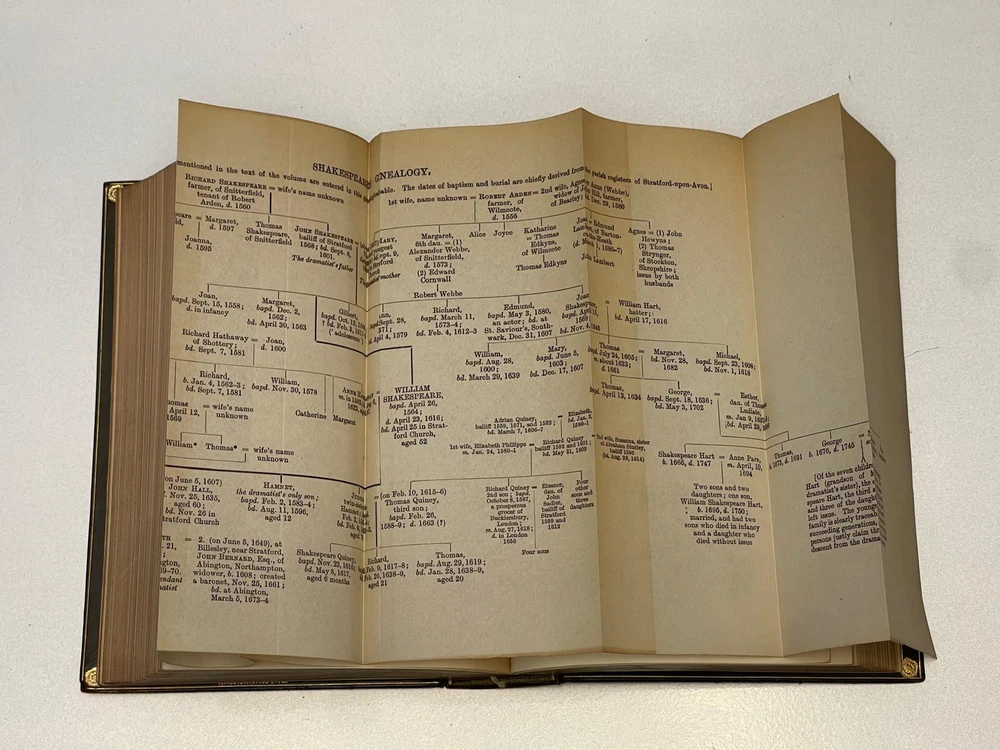 SHAKESPEARE GENEALOGY.
mentioned in the text of the volume are entered in this table. The dates of baptism and burial are chiefly derived from parish registers of Stratford-upon-Avon.]
RICHARD SHAKESPEARE = wife's name unknown
farmer, of Snitterfield,
tenant of Robert
Arden, d. 1560
1st wife, name unknown = ROBERT ARDEN = 2nd wife, Agnes
farmer, of
Wilmcote,
d. 1556
widow of
of Bearley;
Anne (Webbe),
Hill, farmer,
bd. Dec. 29, 1580
= Margaret,
d. 1597
Joanna,
d. 1595
Thomas
Shakespeare,
of Snitterfield
JOHN SHAKESPEARE
bailiff of Stratford
1568; bd. Sept. 8,
1601.
The dramatist's father
MARY,
youngest
bd. Sept. 9,
mother
Margaret,
6th dau. = (1)
Alexander Webbe,
of Snitterfield,
d. 1573;
(2) Edward
Cornwall
Robert Webbe
Alice
Joyce
Katharine
= Thomas
Edkyns,
of Wilmcote
Thomas Edkyns
= Edmund
John Lambert
Agnes = (1) John
Hewyns;
(2) Thomas
Strynger,
of Stockton,
Shropshire;
issue by both
husbands
Joan,
bapd. Sept. 15, 1558;
d. in infancy
Margaret,
bapd. Dec. 2,
1562;
bd. April 30, 1563
Gilbert,
bapd. Oct. 13,
bd. April 4, 1579
Richard,
bapd. March 11,
1573-4;
bd. Feb. 4, 1612-3
Edmund,
bapd. May 3, 1580,
an actor; bd. at
St. Saviour's, South-
wark, Dec. 31, 1607
Joan
Shakespeare,
bapd. April 15,
1569;
bd. Nov. 4, 1646
= William Hart,
hatter;
bd. April 17, 1616
Richard Hathaway = Joan,
of Shottery;
bd. Sept. 7, 1581
d. 1600
Richard,
b. Jan. 4, 1562-3;
bd. Sept. 7, 1581
William,
bapd. Nov. 30, 1578
Catherine
Margaret
WILLIAM
SHAKESPEARE,
bapd. April 26,
1564;
d. April 23, 1616;
bd. April 25 in Strat-
ford Church,
aged 52
William,
bapd. Aug. 28,
1600;
bd. March 29, 1639
Mary,
bapd. June 5,
1603;
bd. Dec. 17, 1607
Thomas
bapd. July 24, 1605;
m. about 1633;
d. 1661
= Margaret,
bd. Nov. 28,
1682
Michael,
bapd. Sept. 23, 1608;
bd. Nov. 1, 1618
Thomas,
bapd. April 13, 1634
George,
bapd. Sept. 18, 1636;
bd. May 3, 1702
= Esther,
dau. of Thomas
Ludiate,
April 12,
1569
= wife's name
unknown
William*
Thomas*
= wife's name
unknown
Adrian Quiney,
bailiff 1559, 1571, and 1582;
bd. March 7, 1606-7
= Elizabeth,
1st wife, Elizabeth Phillipps =
m. Jan. 24, 1580-1
Richard Quiney
bailiff 1592 and 1601;
bd. May 31, 1602
= 2nd wife, Susanna, sister
of Abraham Sturley,
bailiff 1596
(bd. Aug. 26, 1614)
Shakespeare Hart
b. 1666, d. 1747
= Anne Pare,
m. April, 10,
1694
Thomas,
b. 1673, d. 1691
George
b. 1676, d. 1745
Two sons and two
daughters; one son,
William Shakespeare Hart,
b. 1695, d. 1750;
married, and had two
sons who died in infancy
and a daughter who
died without issue
[Of the seven
Hart (grandson of
dramatist's sister), the
speare Hart, the third
and three of the
left issue. The
family is clearly
succeeding generations,
persons justly claim
descent from the
on June 5, 1607)
JOHN HALL,
Nov. 25, 1635,
aged 60;
bd. Nov. 26 in
Stratford Church
HAMNET,
the dramatist's only son;
bapd. Feb. 2, 1583-4;
bd. Aug. 11, 1596,
aged 12
= (on Feb. 10, 1615-6)
Thomas Quiney,
third son;
bapd. Feb. 26,
1588-9; d. 1663 (?)
Richard Quiney,
2nd son; bapd.
October 8, 1587,
a prosperous
grocer of
Bucklersbury,
London;
m. Aug. 27, 1618;
d. in London
1656
Eleanor,
dau. of
John
Sadler,
bailiff of
Stratford
1599 and
1612
Four
other
sons and
three
daughters
Four sons
= 2. (on June 5, 1649), at
Billesley, near Stratford,
JOHN BERNARD, Esq., of
Abington, Northampton,
widower, b. 1608; created
a baronet, Nov. 25, 1661;
bd. at Abington,
March 5, 1673-4
Shakespeare Quiney,
bapd. Nov. 23, 1616;
bd. May 8, 1617,
aged 6 months
Richard,
bapd. Feb. 9, 1617-8;
bd. Feb. 26, 1638-9,
aged 21
Thomas,
bapd. Aug. 29, 1619;
bd. Jan. 28, 1638-9,
aged 20